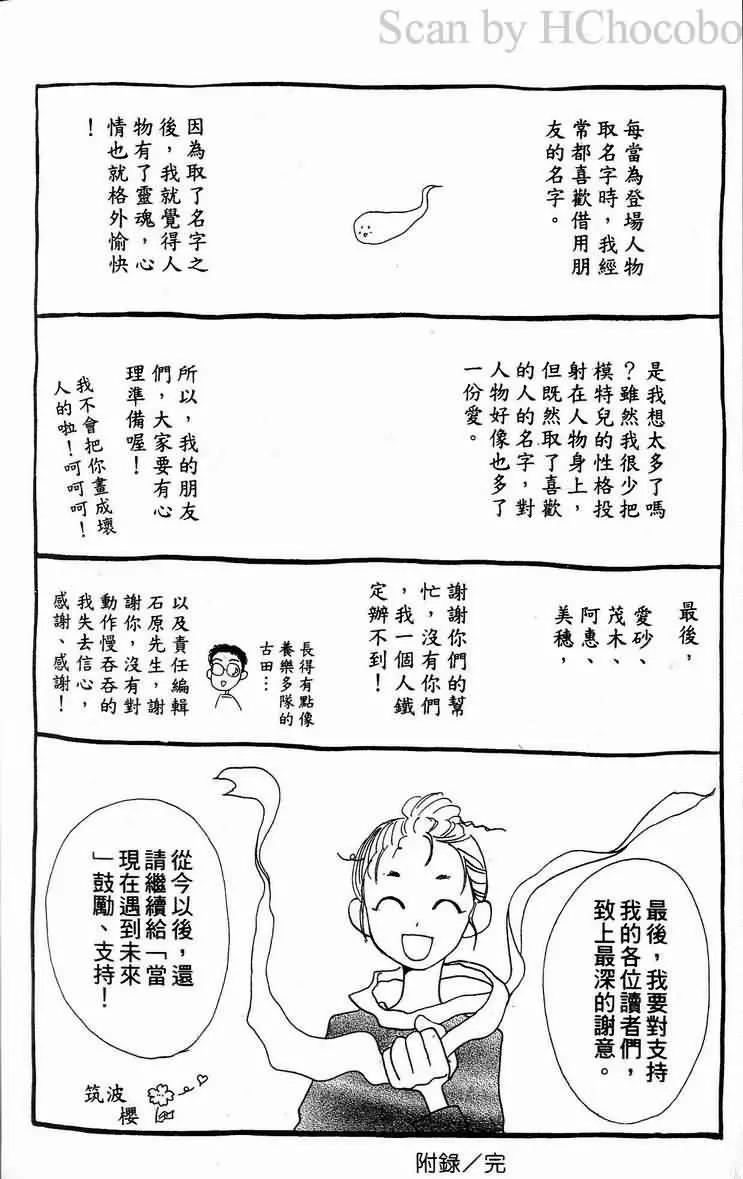 Scan by HChocobo
每當為登場人物
取名字時，我經
常都喜歡借用朋
友的名字。
因為取了名字之
後，我就覺得人
物有了靈魂，心
情也就格外愉快
！
是我想太多了嗎
？雖然我很少把
模特兒的性格投
射在人物身上，
但既然取了喜歡
的人的名字，對
人物好像也多了
一份愛。
所以，我的朋友
們，大家要有心
理準備喔！
我不會把你畫成壞
人的啦！呵呵呵！
最後，
愛砂、
茂木、
阿惠、
美穗，
謝謝你們的幫
忙，沒有你們
，我一個人鐵
定辦不到！
長得有點像
養樂多隊的
古田…
以及責任編輯
石原先生，謝
謝你，沒有對
動作慢吞吞的
我失去信心，
感謝、感謝！
最後，我要對支持
我的各位讀者們，
致上最深的謝意。
從今以後，還
請繼續給「當
現在遇到未來
」鼓勵、支持！
筑波
櫻
附錄／完